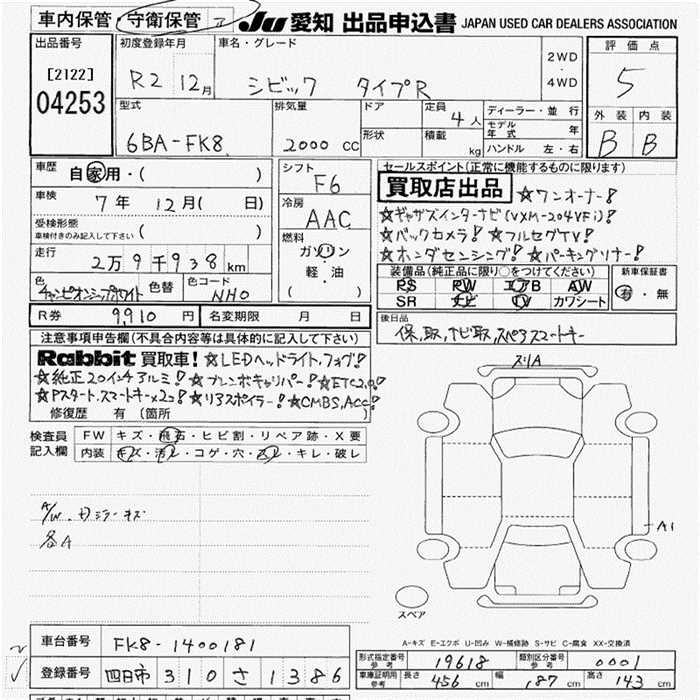 車内保管・守衛保管 JU 愛知 出品申込書 JAPAN USED CAR DEALERS ASSOCIATION
出品番号 初度登録年月 車名・グレード 2WD ・ 4WD 評価点
[2122] R2 12月 シビック タイプR 5
04253 型式 排気量 ドア 定員 4人 ディーラー・並行 外装 内装
モデル年式 年
6BA-FK8 2000 CC 形状 積載 kg ハンドル 左・右 B B
車歴 自家用・( ) シフト F6 セールスポイント(正常に機能するものに限ります)
車検 7年 12月( 日) 冷房 AAC 買取店出品 ☆ワンオーナー!
☆ギャザズインターナビ(VXM-204VFi)!
受検形態 車検付きのみ記入して下さい ( ) 燃料 ☆バックカメラ! ☆フルセグTV!
走行 2万9千938km ガソリン 軽・油 ( ) ☆ホンダセンシング! ☆パーキングソナー!
色 チャンピオンシップホワイト 色替 色コード NHO 装備品(純正品に限り○をつけてください) 新車保証書
PS PW エアB AW 有・無
SR ナビ TV カワシート
R券 9,910円 名変期限 月 日 後日品
注意事項申告欄(不具合内容等は具体的に記入して下さい) 保,取,ナビ取,スペアスマートキー
Rabbit 買取車! ☆LEDヘッドライト・フォグ!
☆純正20インチアルミ! ☆ブレンボキャリパー! ☆ETC2.0!
☆Pスタート.スマートキー×2コ! ☆リアスポイラー! ☆CMBS,ACC!
修復歴 有(箇所
検査員記入欄 FW キズ・飛石・ヒビ割・リペア跡・X要
内装 キズ・汚レ・コゲ・穴・スレ・キレ・破レ
スリA
A/W.ドミラーキズ
各A
A1
スペア
A-キズ E-エクボ U-凹み W-補修跡 S-サビ C-腐食 XX-交換済
車台番号 FK8-1400181
登録番号 四日市 310 さ 1386
形式指定番号 参考 19618 類別区分番号 参考 0001
車庫証明用 参考 長さ 456cm 幅 187cm 高さ 143cm